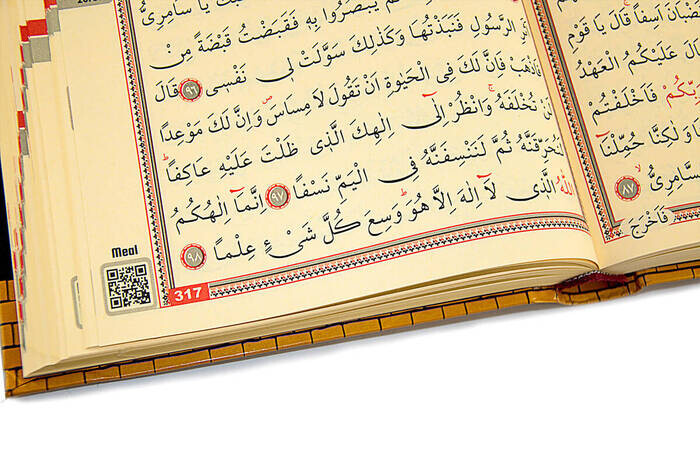 اَسِفاً قَالَ يَا قَوْمِ
عَلَيْكُمُ الْعَهْدُ
فَاَخْلَفْتُمْ
وَلٰكِنَّا حُمِّلْنَٓا
٨٧
فَاَخْرَجَ
يَا سَامِرِيُّ
يَبْصُرُوا بِهٖ فَقَبَضْتُ قَبْضَةً مِنْ
الرَّسُولِ فَنَبَذْتُهَا وَكَذٰلِكَ سَوَّلَتْ لٖي نَفْسٖي ٩٦ قَالَ
فَاذْهَبْ فَاِنَّ لَكَ فِي الْحَيٰوةِ اَنْ تَقُولَ لَا مِسَاسَ وَاِنَّ لَكَ مَوْعِداً
لَنْ تُخْلَفَهُ وَانْظُرْ اِلٰٓى اِلٰهِكَ الَّذٖي ظَلْتَ عَلَيْهِ عَاكِفاً
لَنُحَرِّقَنَّهُ ثُمَّ لَنَنْسِفَنَّهُ فِي الْيَمِّ نَسْفاً ٩٧ اِنَّمَٓا اِلٰهُكُمُ
اللّٰهُ الَّذٖي لَٓا اِلٰهَ اِلَّا هُوَ وَسِعَ كُلَّ شَيْءٍ عِلْماً ٩٨
Meal
317